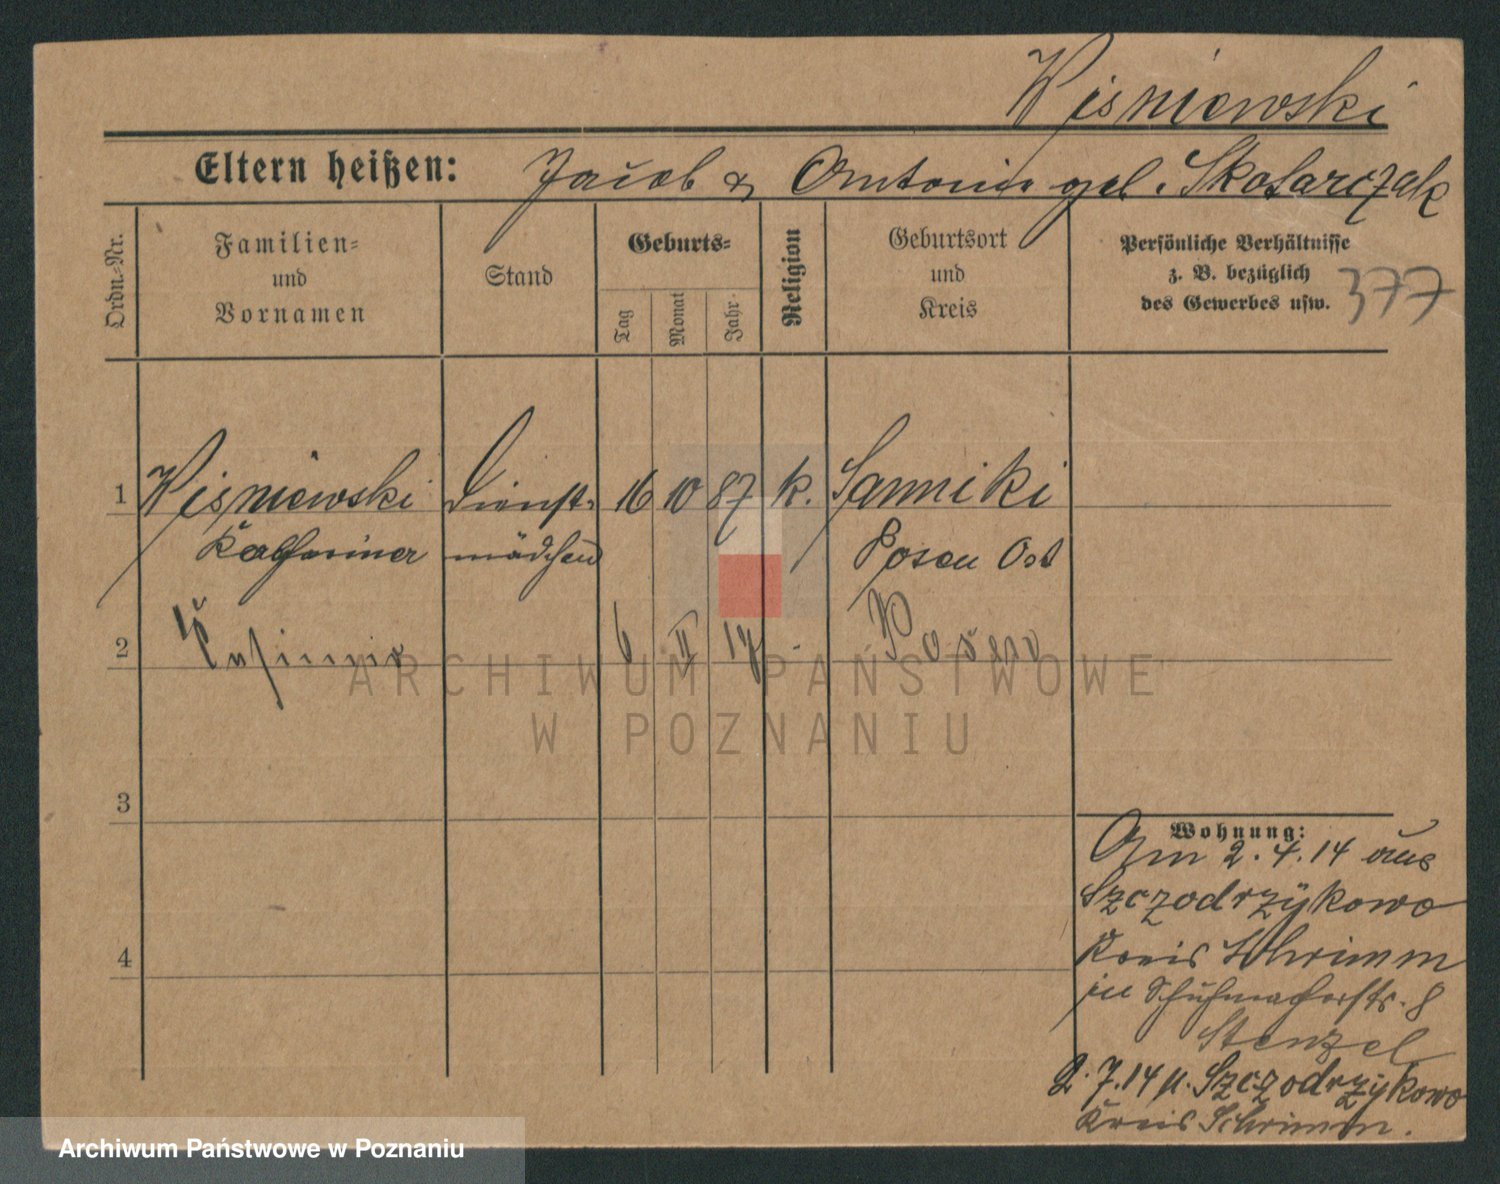 Wisniewski
Eltern heißen: Jacob & Antonie geb. Skotarczak
Ordn.-Nr.
Familien- und Vornamen
Stand
Geburts-
Tag
Monat
Jahr
Religion
Geburtsort und Kreis
Persönliche Verhältnisse
z. B. bezüglich
des Gewerbes usw.
377
1 Wisniewski Dienst- 16 10 87 k. Sanniki
Katharina mädchen Posen Ost
2 Casimir 6 II 17 - Posen
3
4
Wohnung:
Am 2.4.14 aus
Szczodrzykowo
Kreis Schrimm
in Schuhmacherstr. 8
Stenzel
2.7.14 n. Szczodrzykowo
Kreis Schrimm.
ARCHIWUM PAŃSTWOWE
W POZNANIU
Archiwum Państwowe w Poznaniu